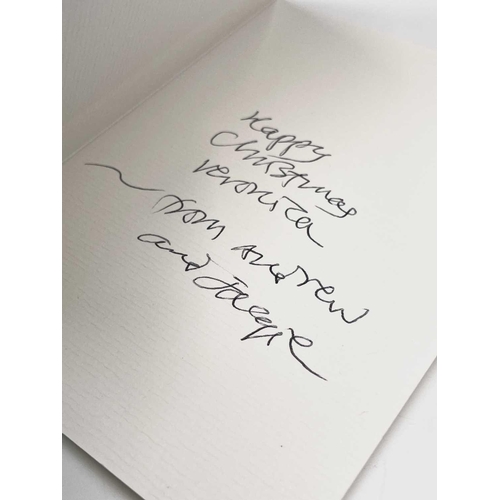 Happy
Christmas
Veronica
~ from Andrew
and